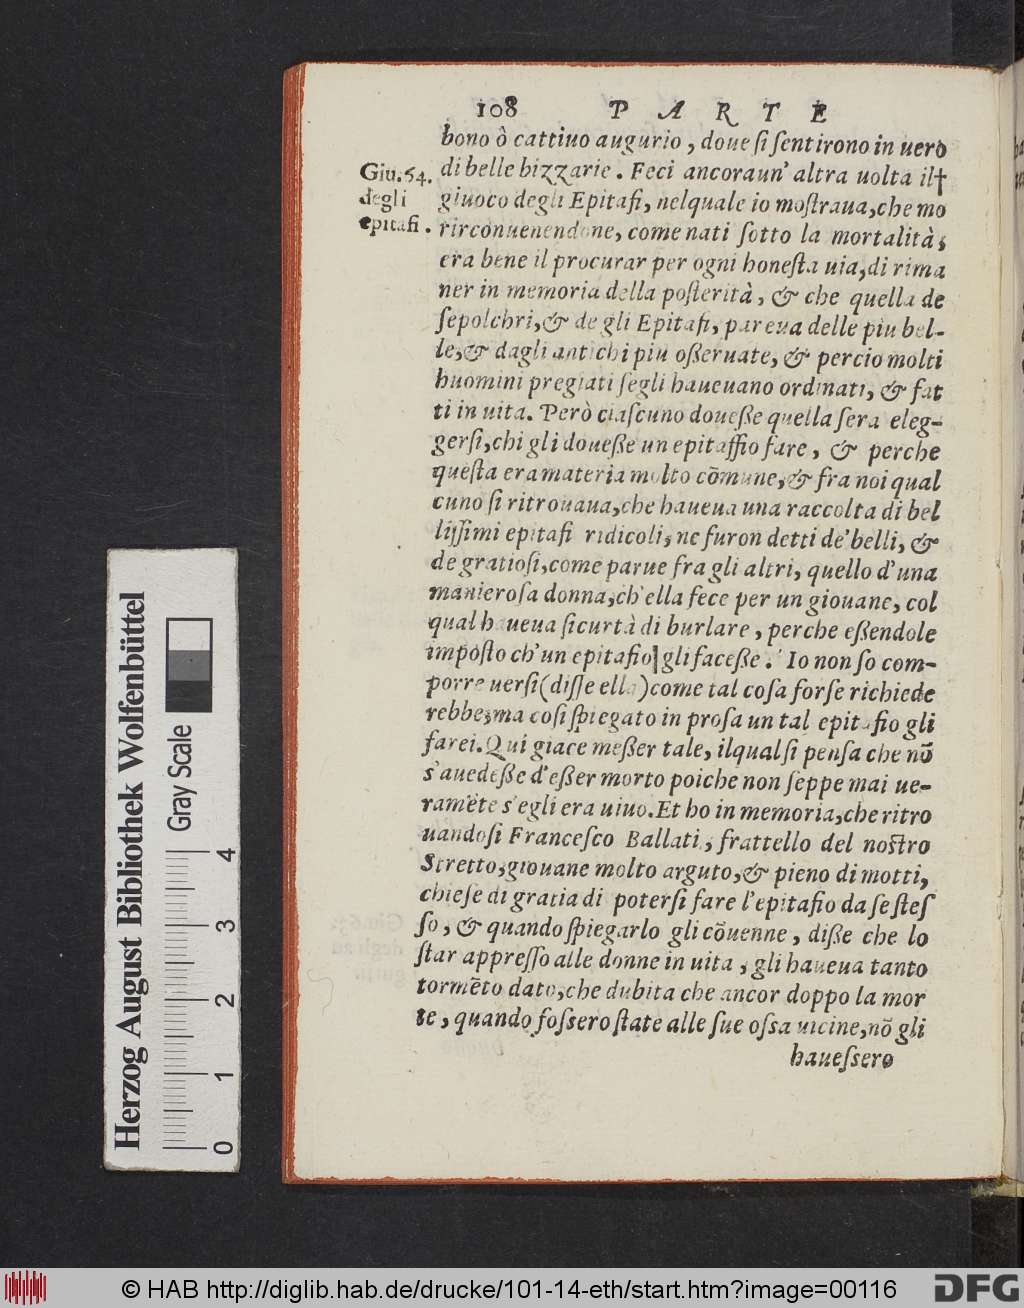 108 PARTE
bono ò cattiuo augurio, doue ſi ſentirono in uero
di belle bizzarie. Feci ancoraun' altra uolta il†
Giu. 54.
degli
epitafi.
giuoco degli Epitafi, nelquale io moſtraua, che mo
rirconuenendone, come nati ſotto la mortalità,
era bene il procurar per ogni honeſta uia, di rima
ner in memoria della poſterità, & che quella de
ſepolchri, & de gli Epitafi, pareua delle piu bel-
le, & dagli antichi piu oßeruate, & percio molti
huomini pregiati ſegli haueuano ordinati, & fat
ti in uita. Però ciaſcuno doueße quella ſera eleg-
gerſi, chi gli doueße un epitaffio fare, & perche
queſta era materia molto cõmune, & fra noi qual
cuno ſi ritrouaua, che haueua una raccolta di bel
liſſimi epitafi ridicoli, ne furon detti de' belli, &
de gratioſi, come parue fra gli altri, quello d'una
manieroſa donna, ch'ella fece per un giouane, col
qual haueua ſicurtà di burlare, perche eßendole
impoſto ch'un epitafio gli faceße. Io non ſo com-
porre uerſi (diſſe ella) come tal coſa forſe richiede
rebbe, ma coſi ſpiegato in proſa un tal epitafio gli
farei. Qui giace meßer tale, ilqual ſi penſa che nõ
s'auedeße d'eßer morto poiche non ſeppe mai ue-
ramẽte s'egli era uiuo. Et ho in memoria, che ritro
uandoſi Franceſco Ballati, frattello del noſtro
Stretto, giouane molto arguto, & pieno di motti,
chieſe di gratia di poterſi fare l'epitafio da ſe ſteſ
ſo, & quando ſpiegarlo gli cõuenne, diße che lo
ſtar appreſſo alle donne in uita, gli haueua tanto
tormẽto dato, che dubita che ancor doppo la mor
te, quando foſſero ſtate alle ſue oſſa uicine, nõ gli
haueſsero
Herzog August Bibliothek Wolfenbüttel
Gray Scale
0 1 2 3 4
© HAB http://diglib.hab.de/drucke/101-14-eth/start.htm?image=00116
DFG